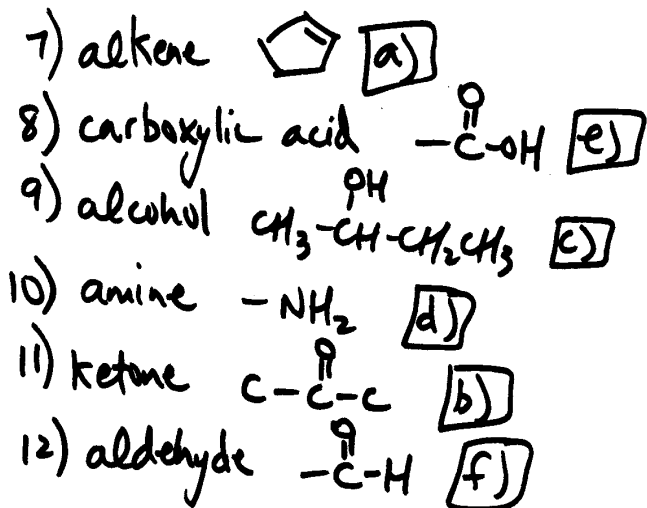 7) alkene a)
O
8) carboxylic acid -C-OH e)
OH
9) alcohol CH3-CH-CH2CH3 c)
10) amine -NH2 d)
O
11) ketone C-C-C b)
O
12) aldehyde -C-H f)